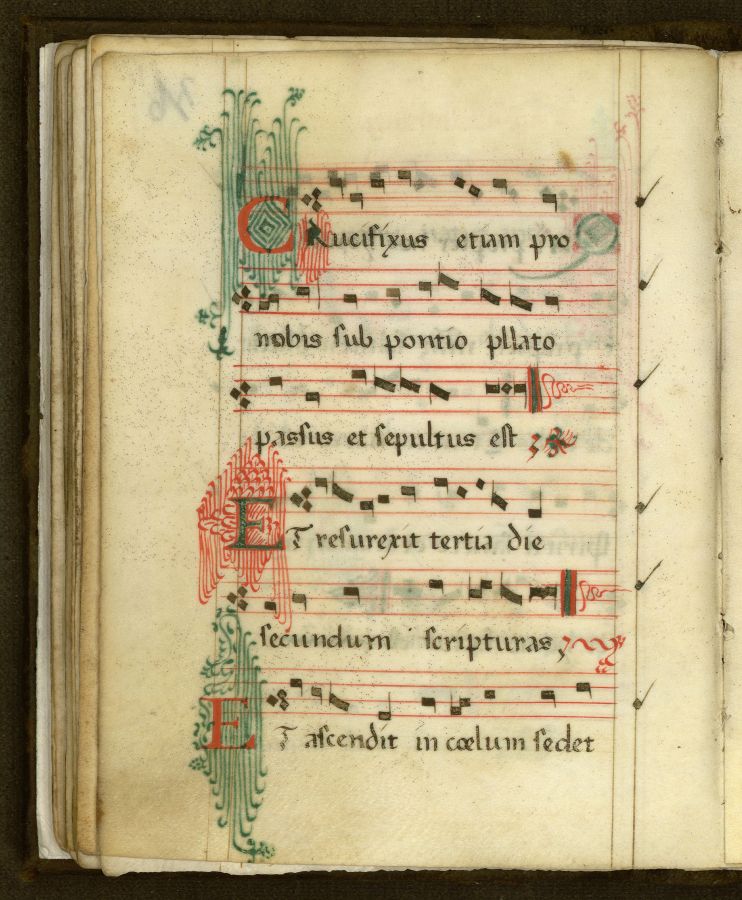 CRucifixus etiam pro
nobis sub pontio pllato
passus et sepultus est
ET resurexit tertia die
secundum scripturas,
ET ascendit in cœlum sedet